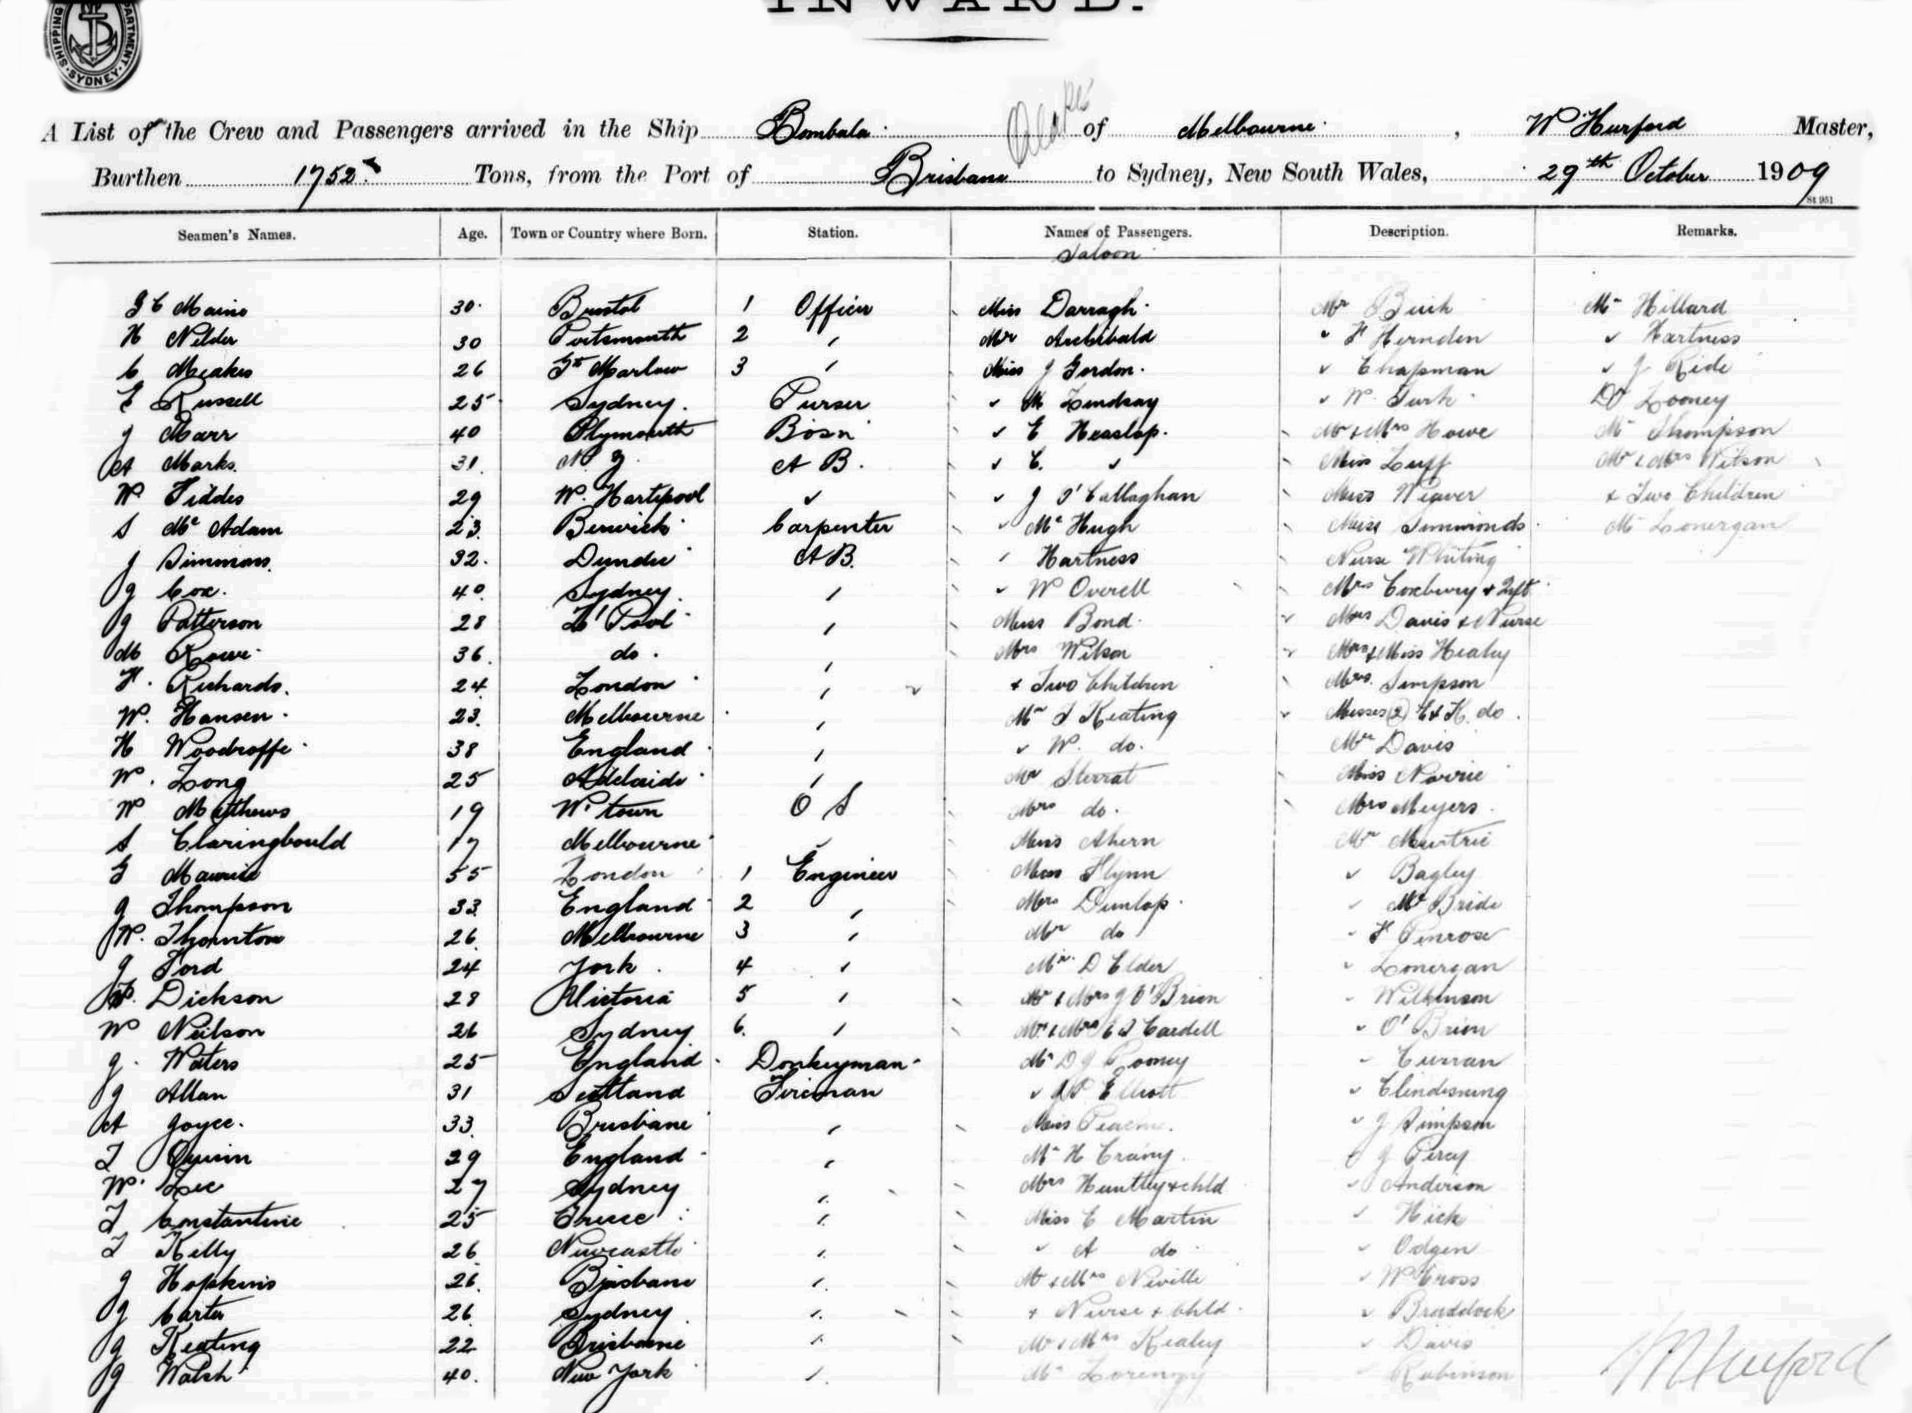 INWARD.
SHIPPING DEPARTMENT SYDNEY
A List of the Crew and Passengers arrived in the Ship Bombala of Melbourne, W Hurford Master,
Burthen 1752 Tons, from the Port of Brisbane to Sydney, New South Wales, 29th October 1909
St 951
Seamen's Names. Age. Town or Country where Born. Station. Names of Passengers. Description. Remarks.
Saloon
30 Bristol 1 Officer Miss Darragh Mr Mr Hillard
H Nilder 30 Portsmouth 2 " Mr Archibald " F Hernden " Hartness
C Meakes 26 Gt Marlow 3 " Miss J Gordon " Chapman " J Ride
E Russell 25 Sydney Purser " M Lindsay " W Turk Dr Looney
J Marr 40 Plymouth Bosn " E Hesslop Mr & Mrs Howe Mr Thompson
A Marks 31 N Z A B " E " Miss Luff Mr & Mrs Wilson
W Fiddes 29 W. Hartlepool " " J O'Callaghan Miss Weaver & Two Children
S Mc Adam 23 Berwick Carpenter " Mc Hugh Miss Simmonds Mr Lonergan
J Simmons 32 Dundee A B " Hartness Nurse Whiting
J Cox 40 Sydney " " W Overell Mrs Coxbury &
J Patterson 28 L'Pool " Miss Bond Mrs Davis & Nurse
M Rowe 36 do. " Mrs Wilson Mrs & Miss Healey
F. Richards 24 London " & Two Children Mrs Simpson
W. Hansen 23 Melbourne " Mr J Keating Misses (2) E & K. do.
H Woodroffe 38 England " " W. do. Mr Davis
W. Long 25 Adelaide " Mr Sterrat Miss Norrie
W Matthews 19 Wmtown O S Mrs do. Mrs Meyers
S Claringbould 17 Melbourne " Miss Ahern Mr
G Maurice 55 London 1 Engineer Miss Flynn " Bagley
J Thompson 33 England 2 " Mrs Dunlop " McBride
W. Thornton 26 Melbourne 3 " Mr do " F Penrose
J Ford 24 York 4 " Mr. D Elder " Lonergan
Dickson 28 Victoria 5 " Mr & Mrs J O'Brien " Wilkinson
W Neilson 26 Sydney 6 " Mr & Mrs Cardell " O'Brien
J. Waters 25 England Donkeyman Mr D J Rooney " Curran
J Allan 31 Scotland Fireman " Elliott " Clindening
A Joyce 33 Brisbane " Miss Pearce " J Simpson
T Quinn 29 England " Mr H J Percy
W. Lee 27 Sydney " Mrs Huntley & chld " Anderson
T Constantine 25 Greece " Miss E Martin " Hick
T Kelly 26 Newcastle " " A do " Odgen
J Hopkins 26 Brisbane " Mr & Mrs Neville " W Cross
J Carter 26 Sydney " & Nurse & Chld " Braddock
J Keating 22 Brisbane " Mr & Mrs Kealey " Davis
J Walsh 40 New York " Mr " Robinson
W Hurford